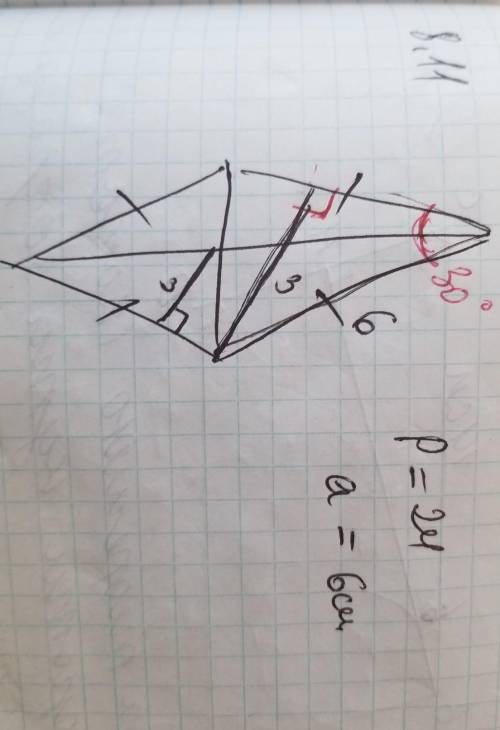 8.11
3
3
6
30°
P = 24
a = 6см